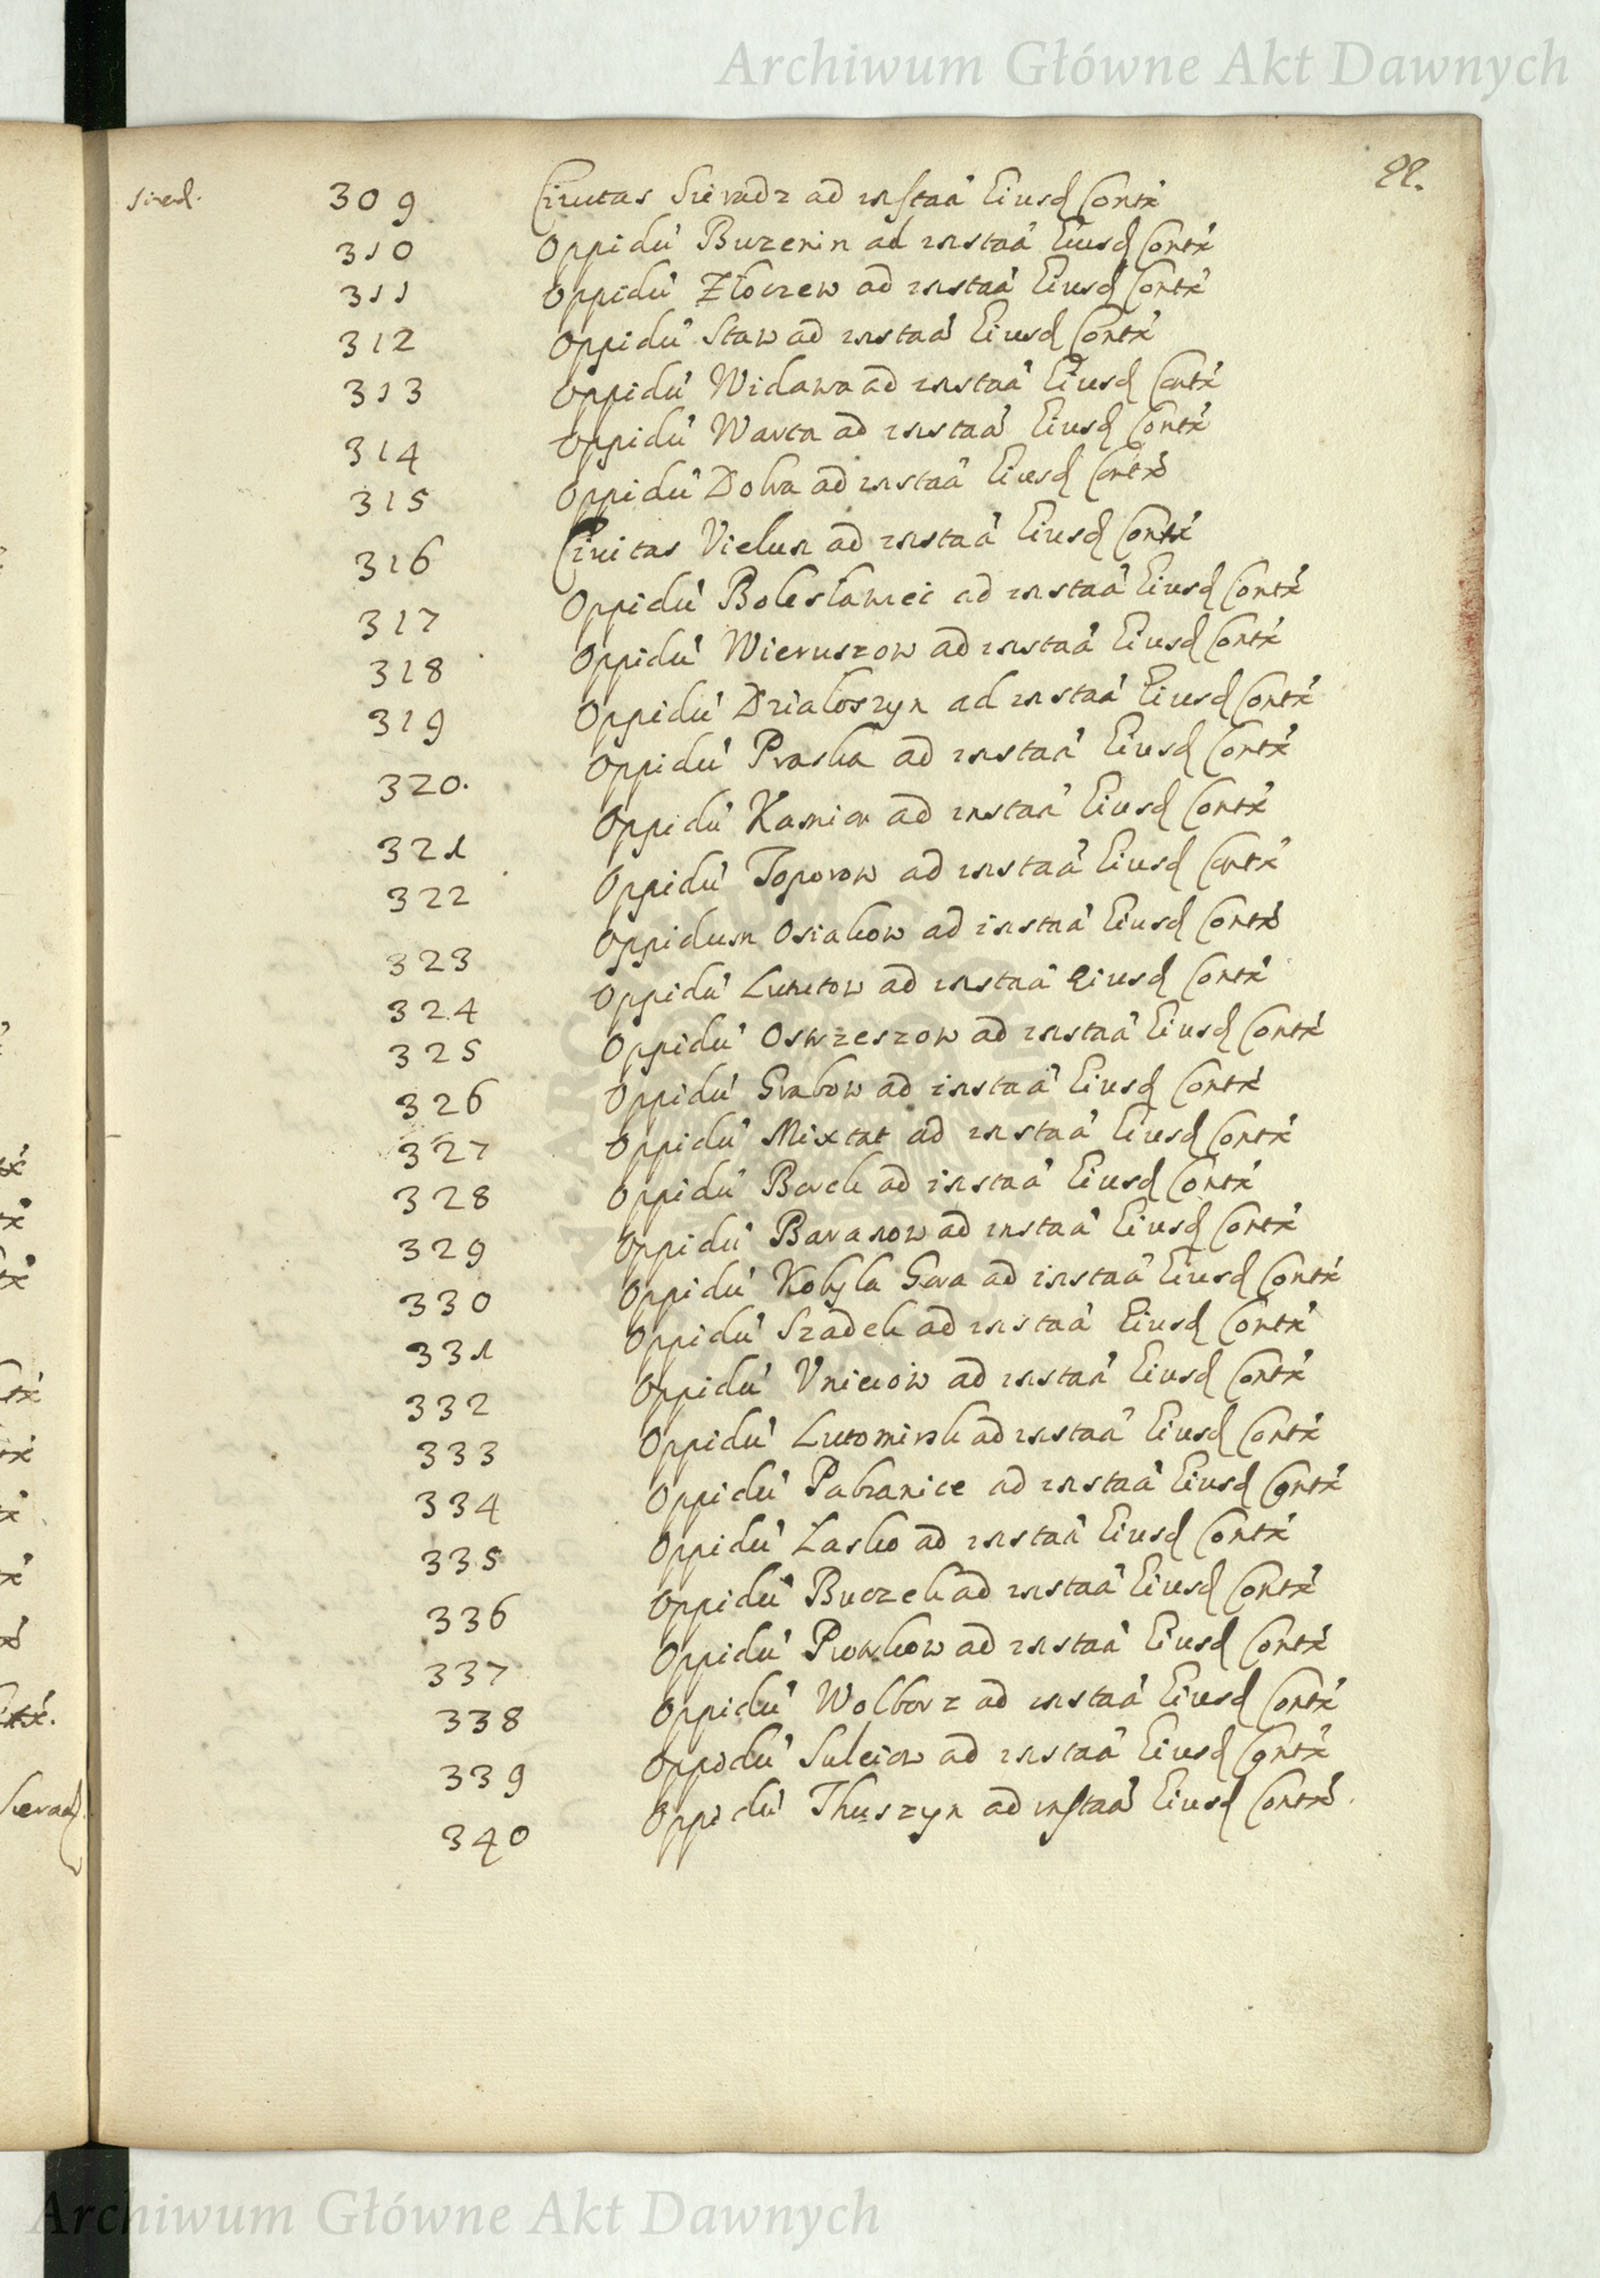 Archiwum Główne Akt Dawnych
22.
Sirad. 309 Ciuitas Sieradz ad instaã Eiusd Contx
310 Oppidũ Burzenin ad instaã Eiusd Contx
311 Oppidũ Złoczew ad instaã Eiusd Contx
312 Oppidũ Staw ad instaã Eiusd Contx
313 Oppidũ Widawa ad instaã Eiusd Contx
314 Oppidũ Warta ad instaã Eiusd Contx
315 Oppidũ Dobra ad instaã Eiusd Contx
316 Ciuitas Vielun ad instaã Eiusd Contx
317 Oppidũ Bolesławiec ad instaã Eiusd Contx
318 Oppidũ Wieruszow ad instaã Eiusd Contx
319 Oppidũ Dzialoszyn ad instaã Eiusd Contx
320. Oppidũ Praska ad instaã Eiusd Contx
321 Oppidũ Kamion ad instaã Eiusd Contx
322 Oppidũ Toporow ad instaã Eiusd Contx
323 Oppidum Osiakow ad instaã Eiusd Contx
324 Oppidũ Lututow ad instaã Eiusd Contx
325 Oppidũ Oswzeszow ad instaã Eiusd Contx
326 Oppidũ Grabow ad instaã Eiusd Contx
327 Oppidũ Mixtat ad instaã Eiusd Contx
328 Oppidũ Borek ad instaã Eiusd Contx
329 Oppidũ Baranow ad instaã Eiusd Contx
330 Oppidũ Kobyla Gora ad instaã Eiusd Contx
331 Oppidũ Szadek ad instaã Eiusd Contx
332 Oppidũ Vnieiow ad instaã Eiusd Contx
333 Oppidũ Lutomirsk ad instaã Eiusd Contx
334 Oppidũ Pabianice ad instaã Eiusd Contx
335 Oppidũ Lasko ad instaã Eiusd Contx
336 Oppidũ Buczek ad instaã Eiusd Contx
337 Oppidũ Piotrkow ad instaã Eiusd Contx
338 Oppidũ Wolborz ad instaã Eiusd Contx
339 Oppidũ Suleiow ad instaã Eiusd Contx
340 Oppidũ Thuszyn ad instaã Eiusd Contx
Archiwum Główne Akt Dawnych